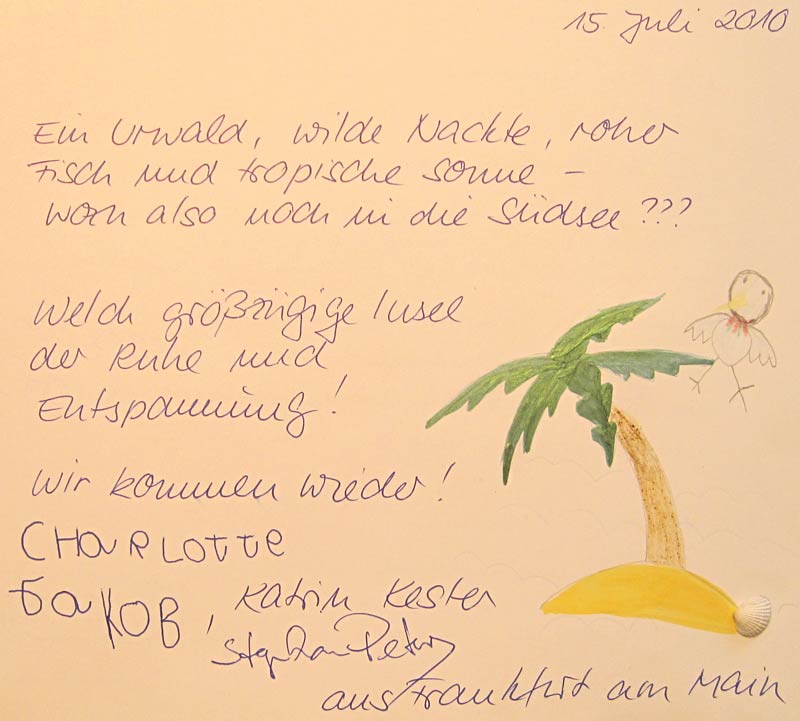 15. Juli 2010
Ein Urwald, wilde Nackte, roher
Fisch und tropische Sonne -
worn also noch in die Südsee ???
Welch großzügige Insel
der Ruhe und
Entspannung!
Wir kommen wieder!
CHaRLOTTE
JaKOB, Katrin Kester
Stephan Peters
aus Frankfurt am Main